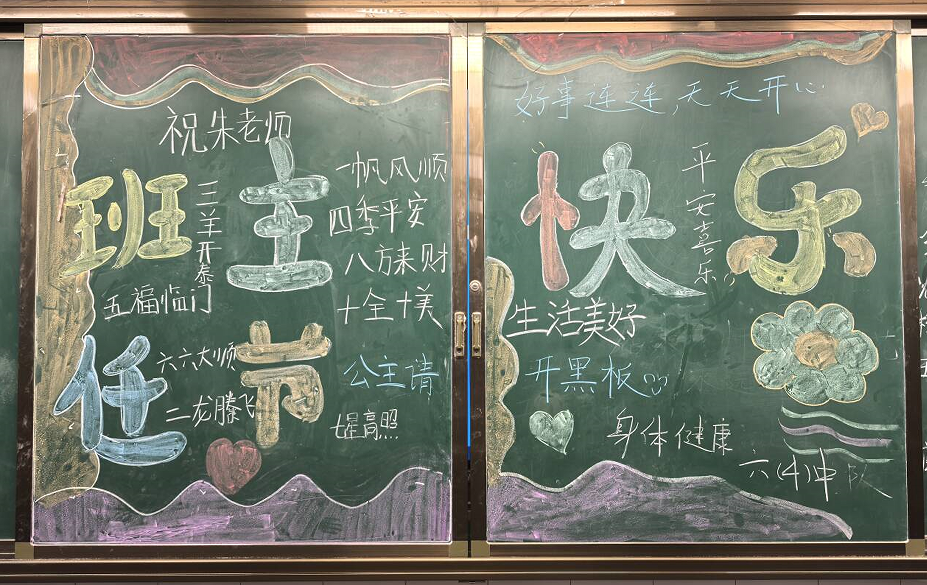 祝朱老师
班主任节
三羊开泰
一帆风顺
四季平安
八方来财
十全十美
五福临门
六六大顺
二龙腾飞
公主请
七星高照
好事连连,天天开心
快乐
平安喜乐
生活美好
开黑板
身体健康
六(4)中队